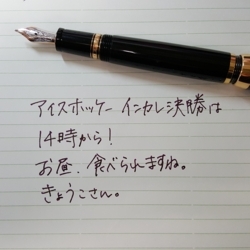 アイスホッケー インカレ決勝は
14時から!
お昼、食べられますね。
きょうこさん。